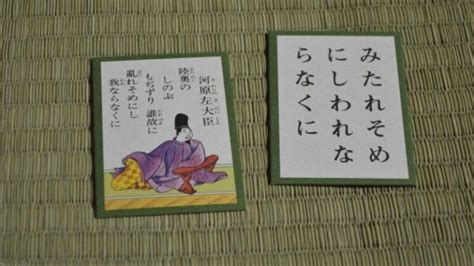 河原左大臣
陸奥の
しのぶ
もちずり 誰故に
亂れそめにし
我ならなくに
みたれそめ
にしわれな
らなくに